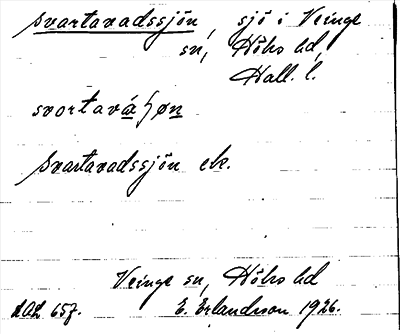 Svartavadssjön, sjö i Veinge
sn, Höks hd,
Hall. l.
svortavá ʃøn
Svartavadssjön ek.
Veinge sn, Höks hd
LAL 657. E. Erlandsson 1926.